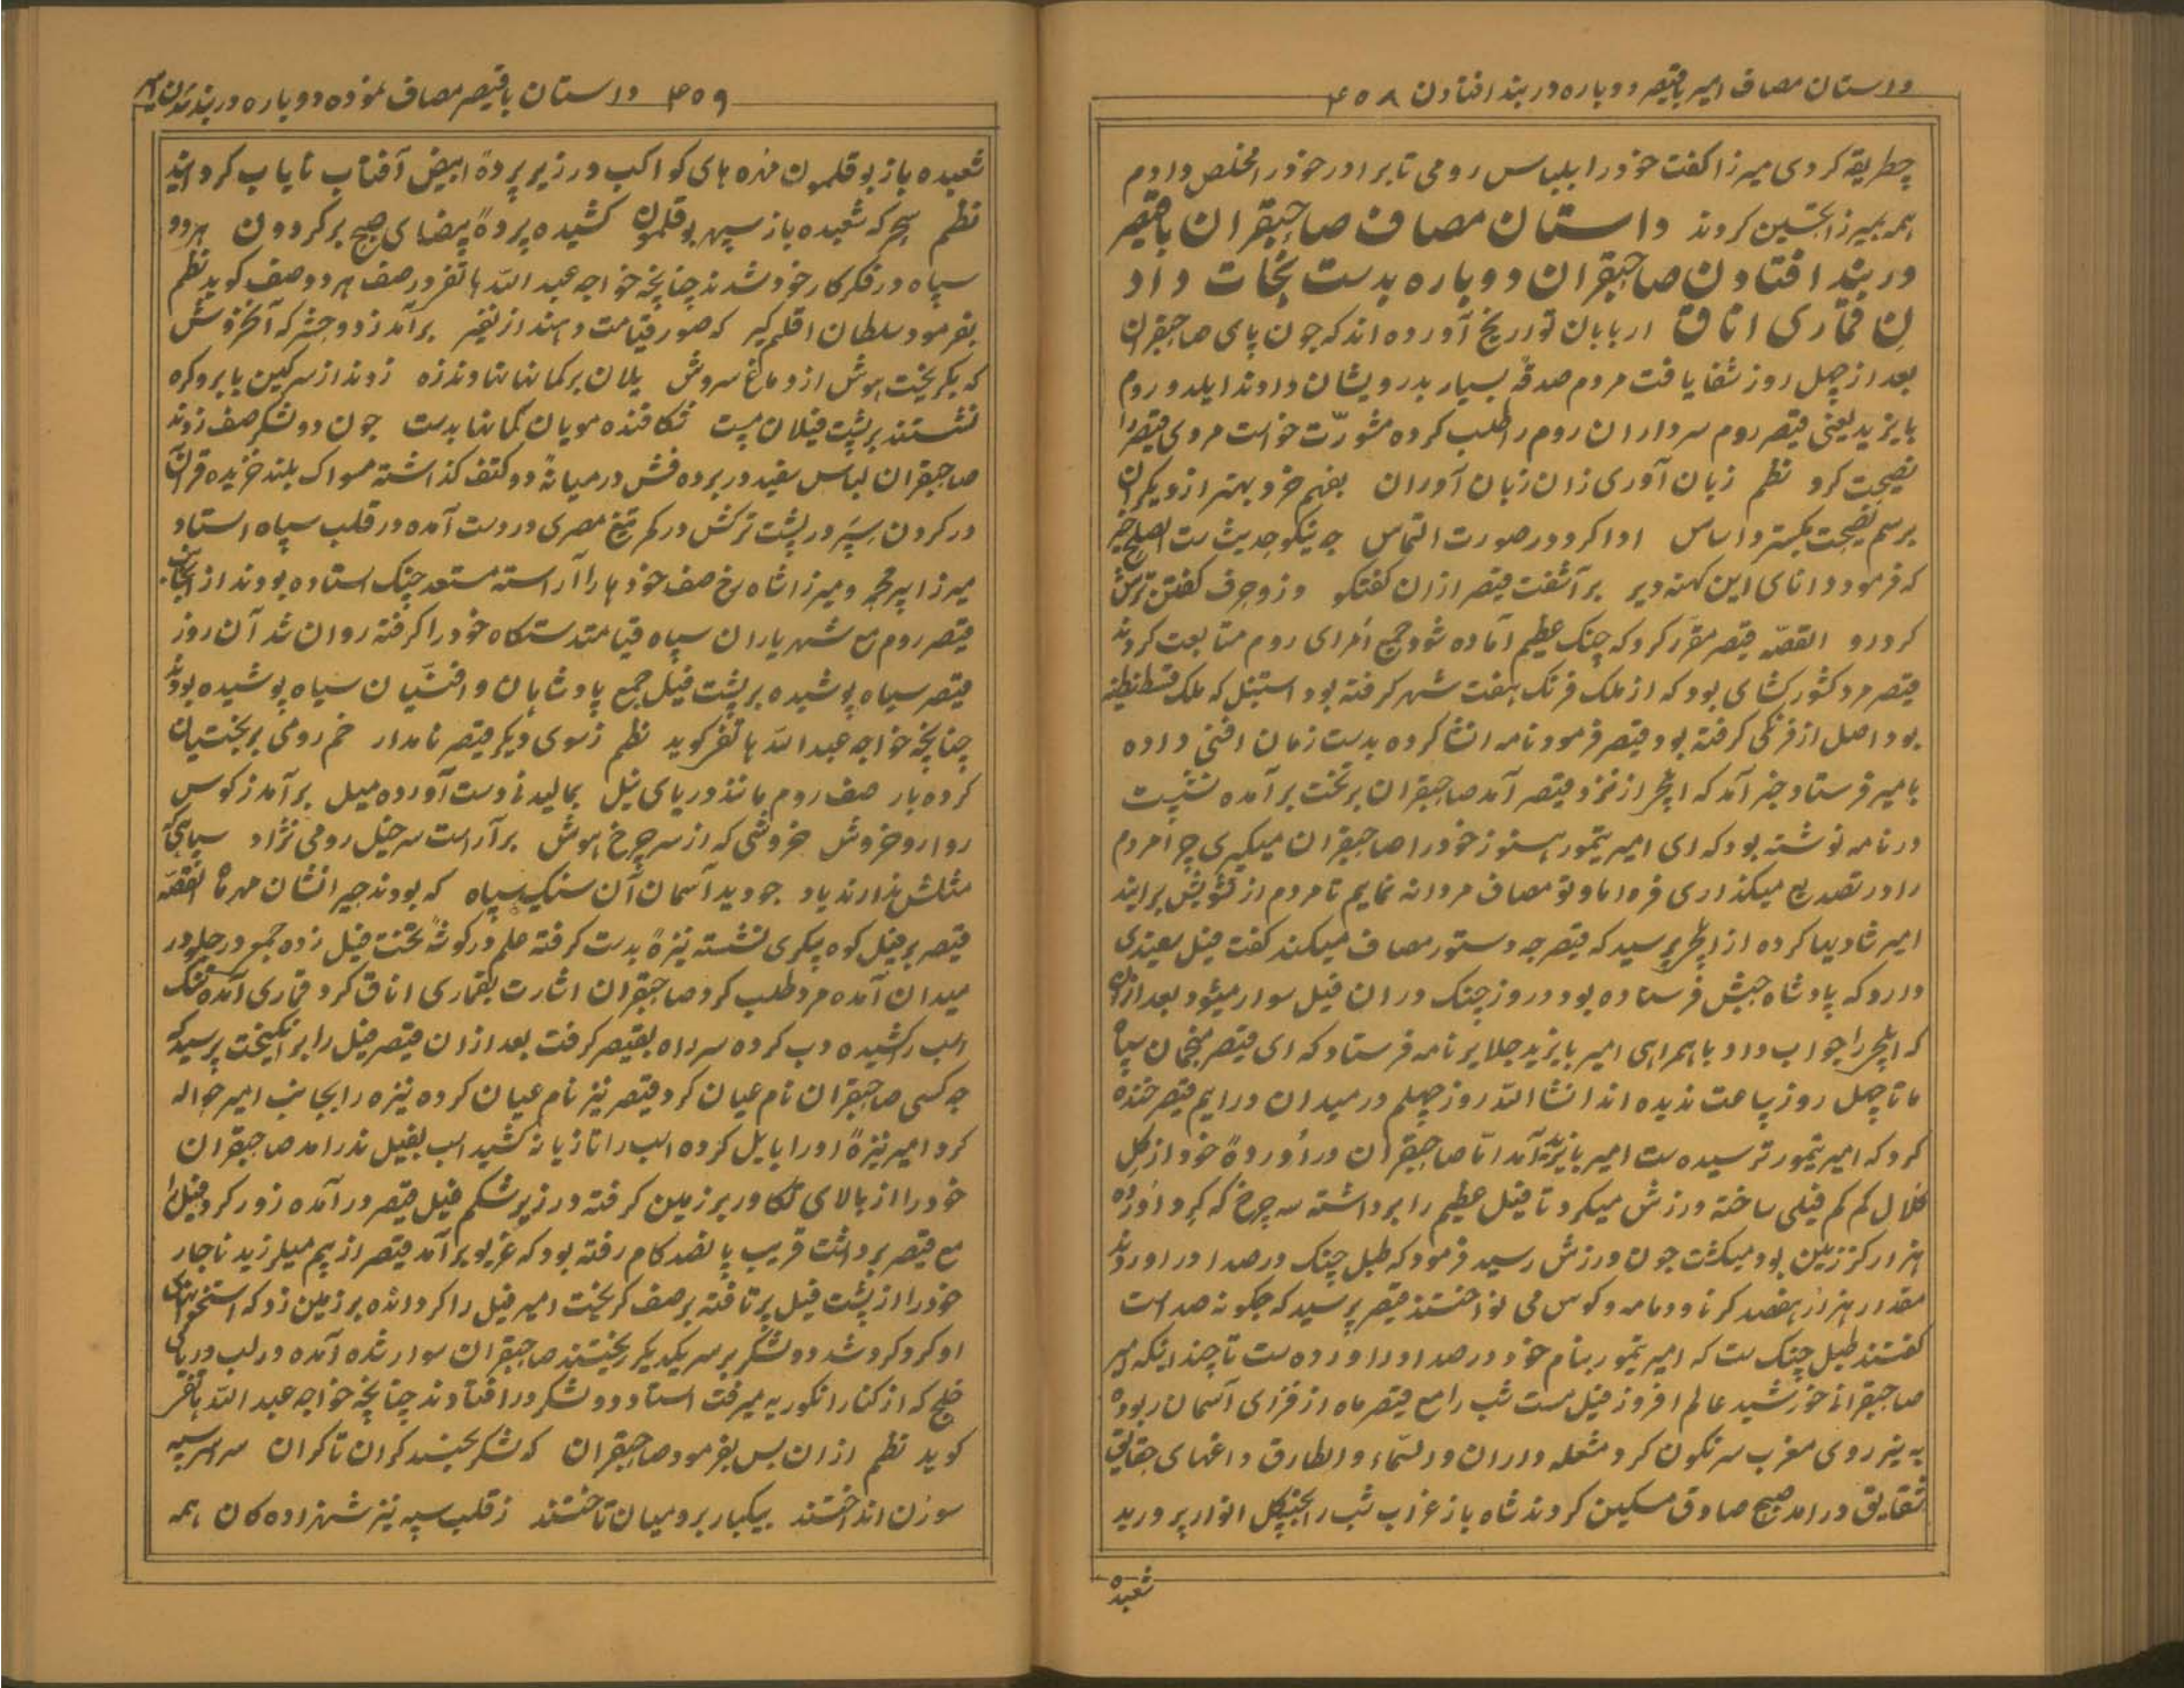 داستان مصاف امیر باقیصر دوباره در بند افتادن ۴۵۸
چطریقه کردی میرزا کفت خودرا بلباس رومی تا برادر خودرا مخلص دادم
همه بمیرزا تحسین کردند داستان مصاف صاحبقران باقیصر
در بند افتادن صاحبقران دوباره بدست نجات داد
ن قماری اناق اربابان تواریخ آورده اند که چون پای صاحبقران
بعد از چهل روز شفا یافت مردم صدقهٔ بسیار بدرویشان دادند ایلدوروم
بایزید یعنی قیصر روم سرداران روم را طلب کرده مشورت خواست مردی قیصر را
نصیحت کرد نظم زبان آوری زان زبان آوران بفهم خرد بهتر از دیکران
برسم نصیحت بکسترد اساس ادا کرد در صورت التماس چه نیکو حدیث ست الصلح خیر
که فرمود دانای این کهنه دیر بر آشفت قیصر ازان کفتکو وزو حرف کفتن ترش
کرد رو القصّه قیصر مقرر کرد که جنک عظیم آماده شود جمیع اُمرای روم متابعت کردند
قیصر مرد کشورکشای بود که از ملک فرنک هفت شهر کرفته بود استنبل که ملک قسطنطنیه
بود اصل از فرنکی کرفته بود قیصر فرمود نامه انشا کرده بدست زمان افنی داده
بامیر فرستاد خبر آمد که ایلچی از نزد قیصر آمد صاحبقران بر تخت برآمده نشست
در نامه نوشته بود که ای امیر تیمور هنوز خودرا صاحبقران میکیری چرا مردم
را در تصدیع میکذاری فردا ما و تو مصاف مردانه نمایم تا مردم از تشویش برایند
امیر شادیها کرده از ایلچی پرسید که قیصر چه دستور مصاف میکند کفت فیل سفیدی
دارد که پادشاه حبش فرستاده بود در روز جنک دران فیل سوار میشود بعد ازان
که ایلچی را جواب داد باهمراهی امیر بایزید جلایر نامه فرستاد که ای قیصر منجمان سپاه
ما تا چهل روز ساعت ندیده اند انشا اللّه روز چهلم در میدان درایم قیصر خنده
کرد که امیر تیمور ترسیده ست امیر بایزید آمد امّا صاحبقران در اُوردوهٔ خود از کل
کلال کم کم فیلی ساخته ورزش میکرد تا فیل عظیم را برداشته سه چرخ که کرد اوردوه
هزار کز زمین بود میکشت چون ورزش رسید فرمود که طبل جنک در صدا در اوردند
مقدار هزار هفصد کرنا و دمامه و کوس می نواختند قیصر پرسید که چکونه صداست
کفتند طبل جنک ست که امیر تیمور بنام خود در صدا در اورده ست تا چند اینکه امیر
صاحبقرانی خورشید عالم افروز فیل مست شب را مع قیصر ماه از فزای آسمان ربوده
به نیز روی مغرب سرنکون کرد مشعله داران والسّماء والطارق داغهای حقایق
شقایق در آمد صبح صادق مسکین کردند شاه باز غراب شب را بجنکل انوار پر ورید
شعبده
۴۵۹ داستان باقیصر مصاف نموده دوباره در بند شدن امیر
شعبده باز بوقلمون مهره های کواکب در زیر پردهٔ ابیض آفتاب نایاب کردانید
نظم سحر که شعبده باز سپهر بوقلمون کشیده پردهٔ بیضای صبح بر کردون هردو
سپاه در فکر کار خود شدند چنانچه خواجه عبد اللّه هاتفی در صف هردو صف کوید نظم
بفرمود سلطان اقلیم کیر که صور قیامت دهند از نفیر برآمد ز دو حشر که آنخروش
که بکریخت هوش از دماغ سروش یلان بر کمانها نهادند زه زدند از سر کین بابرو کره
نشستند بر پشت فیلان مست شکافنده مویان کمانها بدست چون دو لشکر صف زدند
صاحبقران لباس سفید در بر ده فش در میانهٔ دو کتف کذاشته مسواک بلند خزیده قرآن
در کردن سپر در پشت ترکش در کمر تیغ مصری در دست آمده در قلب سپاه استاد
میرزا پیر محمد و میرزا شاه رخ صف خودهارا آراسته مستعد جنک استاده بودند از انجانب
قیصر روم مع شهریاران سپاه قیامتدستکاه خودرا کرفته روان شد آن روز
قیصر سیاه پوشیده بر پشت فیل جمیع پادشاهان و افشیان سیاه پوشیده بودند
چنانچه خواجه عبد اللّه هاتفی کوید نظم ز سوی دیکر قیصر نامدار خم رومی بر بختیان
کرده بار صف روم مانند دریای نیل بمالید دست آورده میل برآمد ز کوس
روارو خروش خروشی که از سر چرخ هوش برآراست سر خیل رومی نژاد سپاهی که
مثلش ندارند یاد چو دید آسمان آن سنک سپاه که بودند جیر انشان مهر ماه القصّه
قیصر بر فیل کوه پیکری نشسته نیزهٔ بدست کرفته علم در کوشهٔ تخت فیل زده جمع در جلو در
میدان آمده مرد طلب کرد صاحبقران اشارت بقماری اناق کرد قماری آمده تنک
اسب را کشیده دب کرده سر راه بقیصر کرفت بعد ازان قیصر فیل را برانکیخت پرسید که
چه کسی صاحبقران نام عیان کرد قیصر نیز نام عیان کرده نیزه را بجانب امیر حواله
کرد امیر نیزهٔ اورا بایل کرده اسب را تازیانه کشید اسب بفیل ندرامد صاحبقران
خودرا از بالای تکاور بر زمین کرفته در زیر شکم فیل قیصر درآمده زور کرد فیل را
مع قیصر برداشت قریب پانصد کام رفته بود که غریو برآمد قیصر از بیم میلرزید ناچار
خودرا از پشت فیل پرتافته بر صف کریخت امیر فیل را کردانده بر زمین زد که استخوانهای
او کرد کرد شد دو لشکر بر سر یکدیکر ریختند صاحبقران سوار شده آمده در لب دریای
خلج که از کنار انکوریه میرفت استاد دو لشکر در افتادند چنانچه خواجه عبد اللّه هاتفی
کوید نظم ازان پس بفرمود صاحبقران که لشکر بجنبند کران تا کران سراسر سپه
سوزن انداختند بیکبار بر رومیان تاختند ز قلب سپه نیز شهزاده کان همه